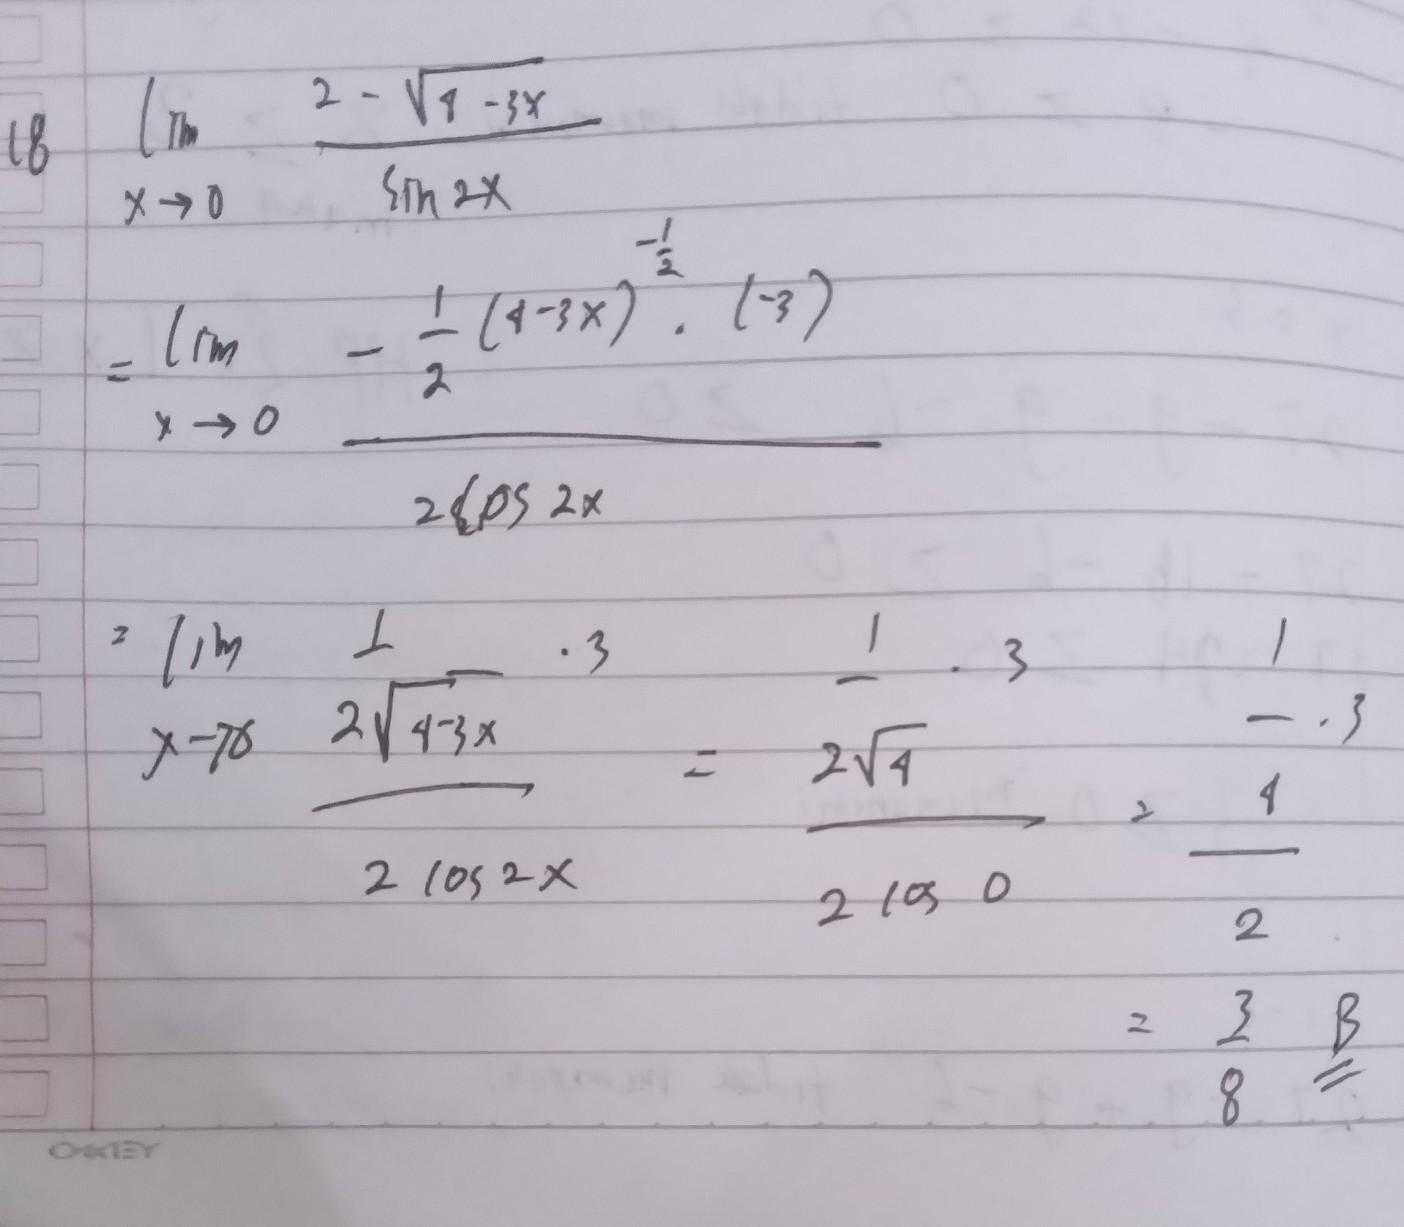 18 lim x→0 (2 - √(4-3x)) / (sin 2x)
= lim x→0 (- 1/2 (4-3x)^(-1/2) . (-3)) / (2 cos 2x)
= lim x→0 (1/(2√(4-3x)) . 3) / (2 cos 2x) = (1/(2√4) . 3) / (2 cos 0) = (1/4 . 3) / 2
= 3/8 B
OAKLEY